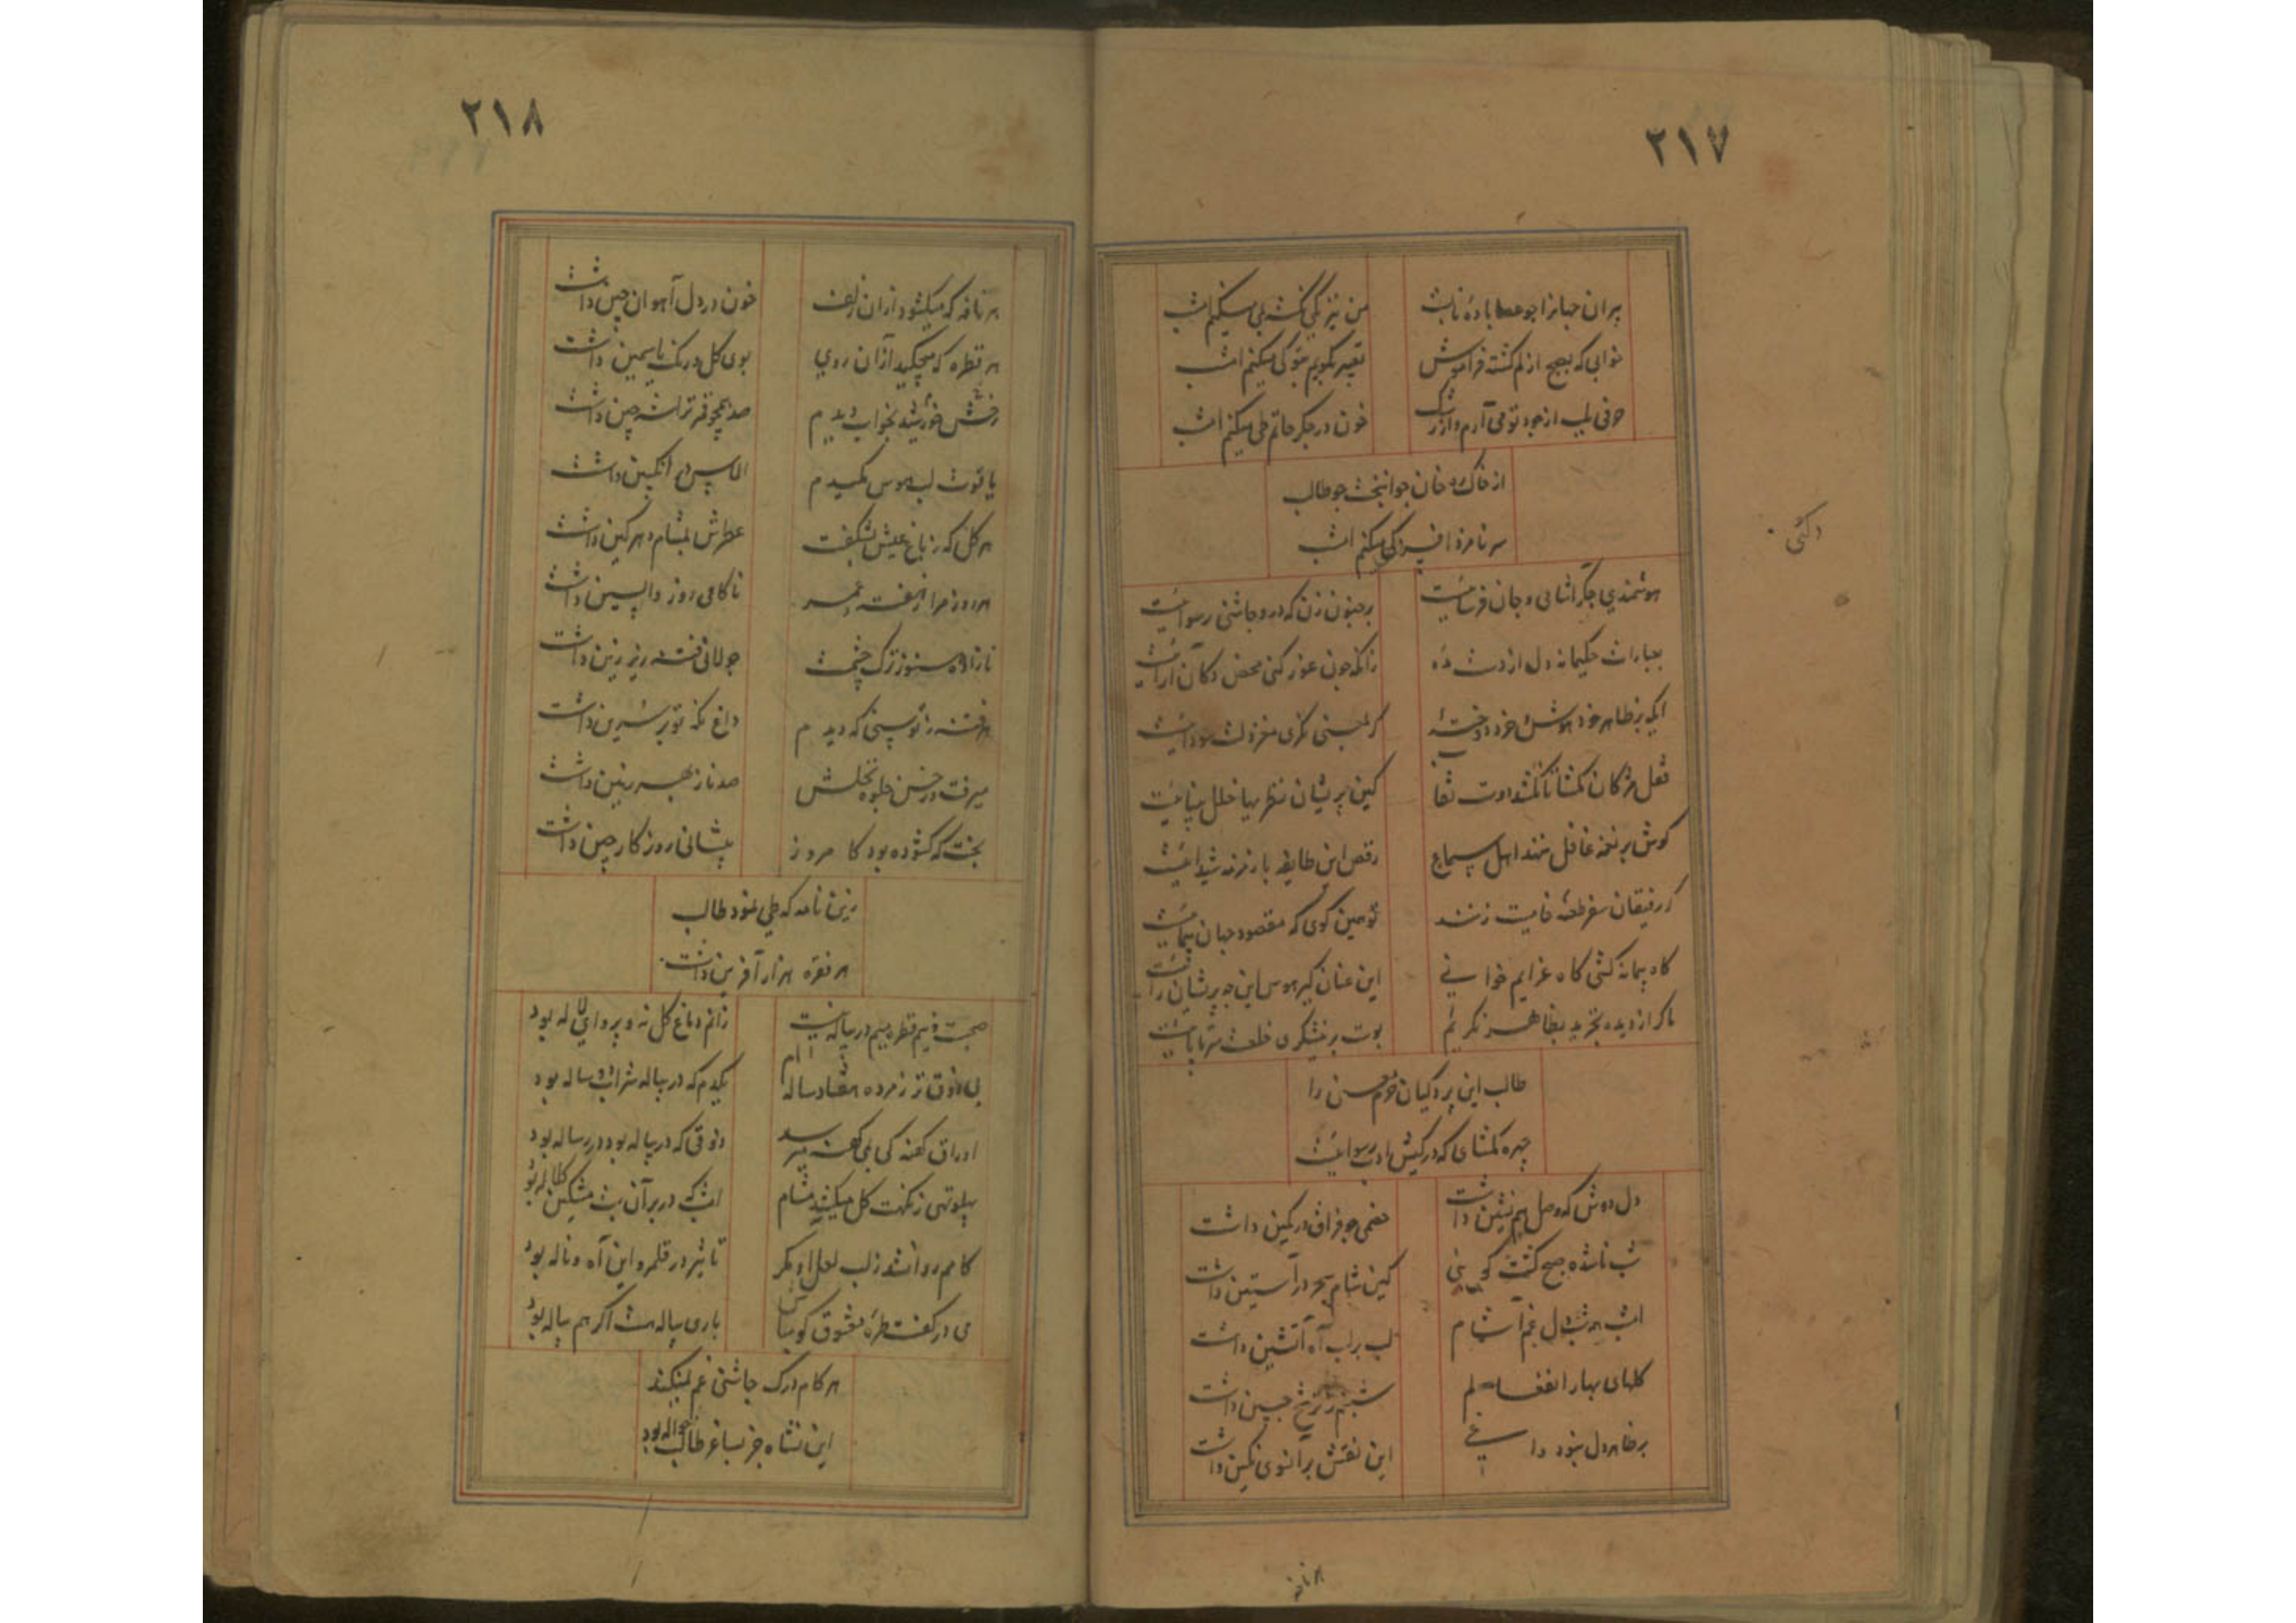 ۲۱۷
پیران جهانرا جو عطا باده ناب
من نیز میکنم امشب
خوابی که بصبح از لم کشته فراموش
تعبیر نکویم بتو کی میکنم امشب
حرفی بلب از جود تو می آرم و از رشک
خون در جکر حاتم طی میکنم امشب
از خاک ره خان جوانبخت جو طالب
سر نامزد افسر کی میکنم امشب
هوشمندی جکر اشامی و جان فرسائیست
بر جنون زن که درو جاشنی رسوائیست
بعبارات حکیمانه دل از دست مده
زانکه جون غور کنی محض دکان آرائیست
ایکه بر ظاهر خود هوش خرد دوخته
کر بمعنی نکری مغز سودائیست
قفل مژکان نکشا تا نکشد اوت نقا
کین پریشان نظریها خلل بینائیست
کوش بر نغمه غافل ننهد اهل سماع
رقص این طایفه با زمزمه شیدائیست
کر رفیقان سفر طعنه خامیت زنند
تو همین کوی که مقصود جهان پیمائیست
کاه پیمانه کشی کاه عزایم خوانی
این عنان کیر هوس این جه پریشان رائیست
ما کر از دیده تجرید بظاهر نکریم
بوت بر خشکری خلعت سرتا پائیست
طالب این پردکیان حرم معنی را
چهره نکشای که در کیش ادب رسوائیست
دل دوش که وصل همنشین داشت
خصمی جو فراق در کمین داشت
شب ناشده صبح کشت کویی
کین شام سحر در آستین داشت
امشب همه شب دل غم آشام
لب بر لب آه آتشین داشت
کلهای بهار انفعالم
شبنم ز ترشح جبین داشت
بر ظاهر دل نبود داغی
این نقش بر آنروی نکین داشت
هر نافه
دکنی
۲۱۸
هر نافه که میکشود از آن زلف
خون در دل آهوان چین داشت
هر قطره که میچکید از آن روی
بوی کل و رنک یاسمین داشت
رخش خورشید بخواب دیدم
صد همچو قمر تراشه چین داشت
یاقوت لب هوس مکیدم
الماس در انکبین داشت
هر کل که ز باغ عیش بشکفت
عطرش بمشام زهر کین داشت
هر روز مرا ز هفته عمر
ناکامی روز واپسین داشت
نازاده هنوز ترک چشمت
جولانی فتنه زیر زین داشت
هر فتنه ز توسنی که دیدم
داغ نکه تو بر سرین داشت
میرفت و ز حسن جلوه نخلش
صد ناز بهر زمین داشت
بخت که کشوده بود کامروز
پیشانی روزکار چین داشت
زین نامه که طی نمود طالب
هر نقره هزار آفرین داشت
صحبت و نیم قطره میم در پیاله نیست
زانم دماغ کل نه و پروای لاله بود
بی ذوق تر ز مرده هفتاد ساله ام
یکدم که در پیاله شراب دو ساله بود
اوراق کهنه کی بمی کهنه میرسد
ذوقی که در پیاله بود در رساله بود
پهلو تهی ز نکهت کل میکند مشام
امشب که در بر آن بت مشکین کلاله بود
کامم روا نشد ز لب لعل او مکر
تاثیر در قلمرو این آه و ناله بود
می در کفت طره معشوق کو مباش
باری پیاله هست اکر هم پیاله بود
هر کام درک چاشنی غم نمیکند
این نشاه جز بساغر طالب حواله بود